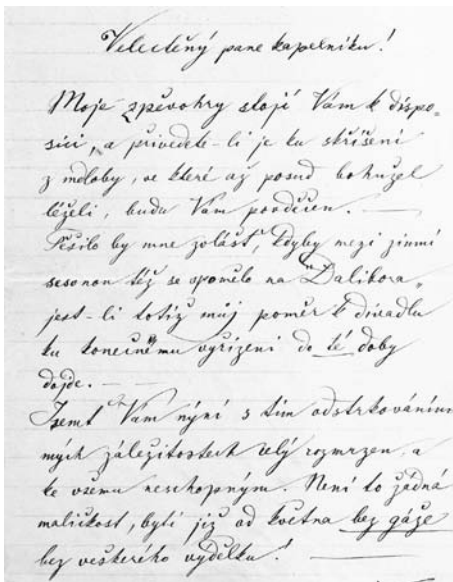 Velectěný pane kapelníku!
Moje zpěvohry stojí Vám k dispo-
sici, a přivedete-li je ku skříšení
z mdloby, ve které až posud bohužel
leželi, budu Vám povděčen. —
Těšilo by mne zvlášť, kdyby mezi zimní
sesonou též se vpomělo na "Dalibora„
jest-li totiž můj poměr k divadlu
ku konečnému vyřízení do té doby
dojde. — —
Jsemť Vám nyní s tím odstrkováním
mých záležitostech celý rozmrzen, a
ke všemu neschopným. Není to žádná
maličkost, býti již od května bez gáže
bez veškerého výdělku! —